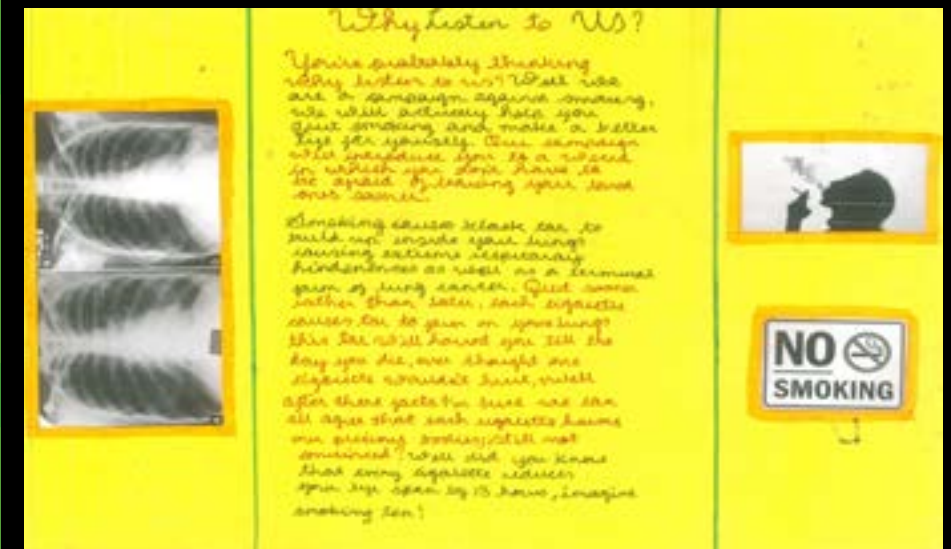 Why Listen to US?
You're probably thinking
why listen to us? Well we
are a campaign against smoking,
we will actively help you
quit smoking and make a better
life for yourself. Our campaign
will introduce you to a world
in which you don't have to
be afraid of leaving your loved
ones sooner.
Smoking causes black tar to
build up inside your lungs
causing extreme respiratory
as well as a terminal
form of lung cancer. Quit sooner
rather than later, each cigarette
causes tar to form on your lungs
this tar will haunt you till the
day you die, ever thought one
cigarette wouldn't hurt, well
after these facts I'm sure we can
all agree that each cigarette harms
our precious bodies, still not
convinced? Well did you know
that every cigarette reduces
your life span by 13 hours, imagine
smoking ten!
NO
SMOKING